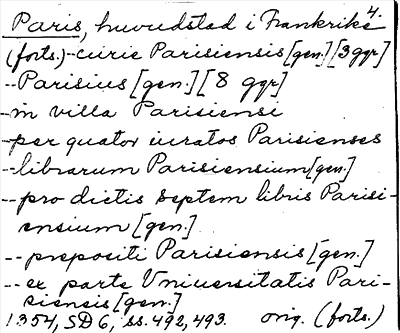 Paris, huvudstad i Frankrike 4.
(forts.)--curie Parisiensis [gen.] [3 ggr]
--Parisius [gen.] [8 ggr]
--in villa Parisiensi
--per quatuor iuratos Parisienses
--librarum Parisiensium [gen.]
--pro dictis septem libris Parisi-
ensium [gen.]
--prepositi Parisiensis [gen.]
--ex parte Vniuersitatis Pari-
siensis [gen.]
1354, SD 6, ss. 492, 493. orig. (forts.)